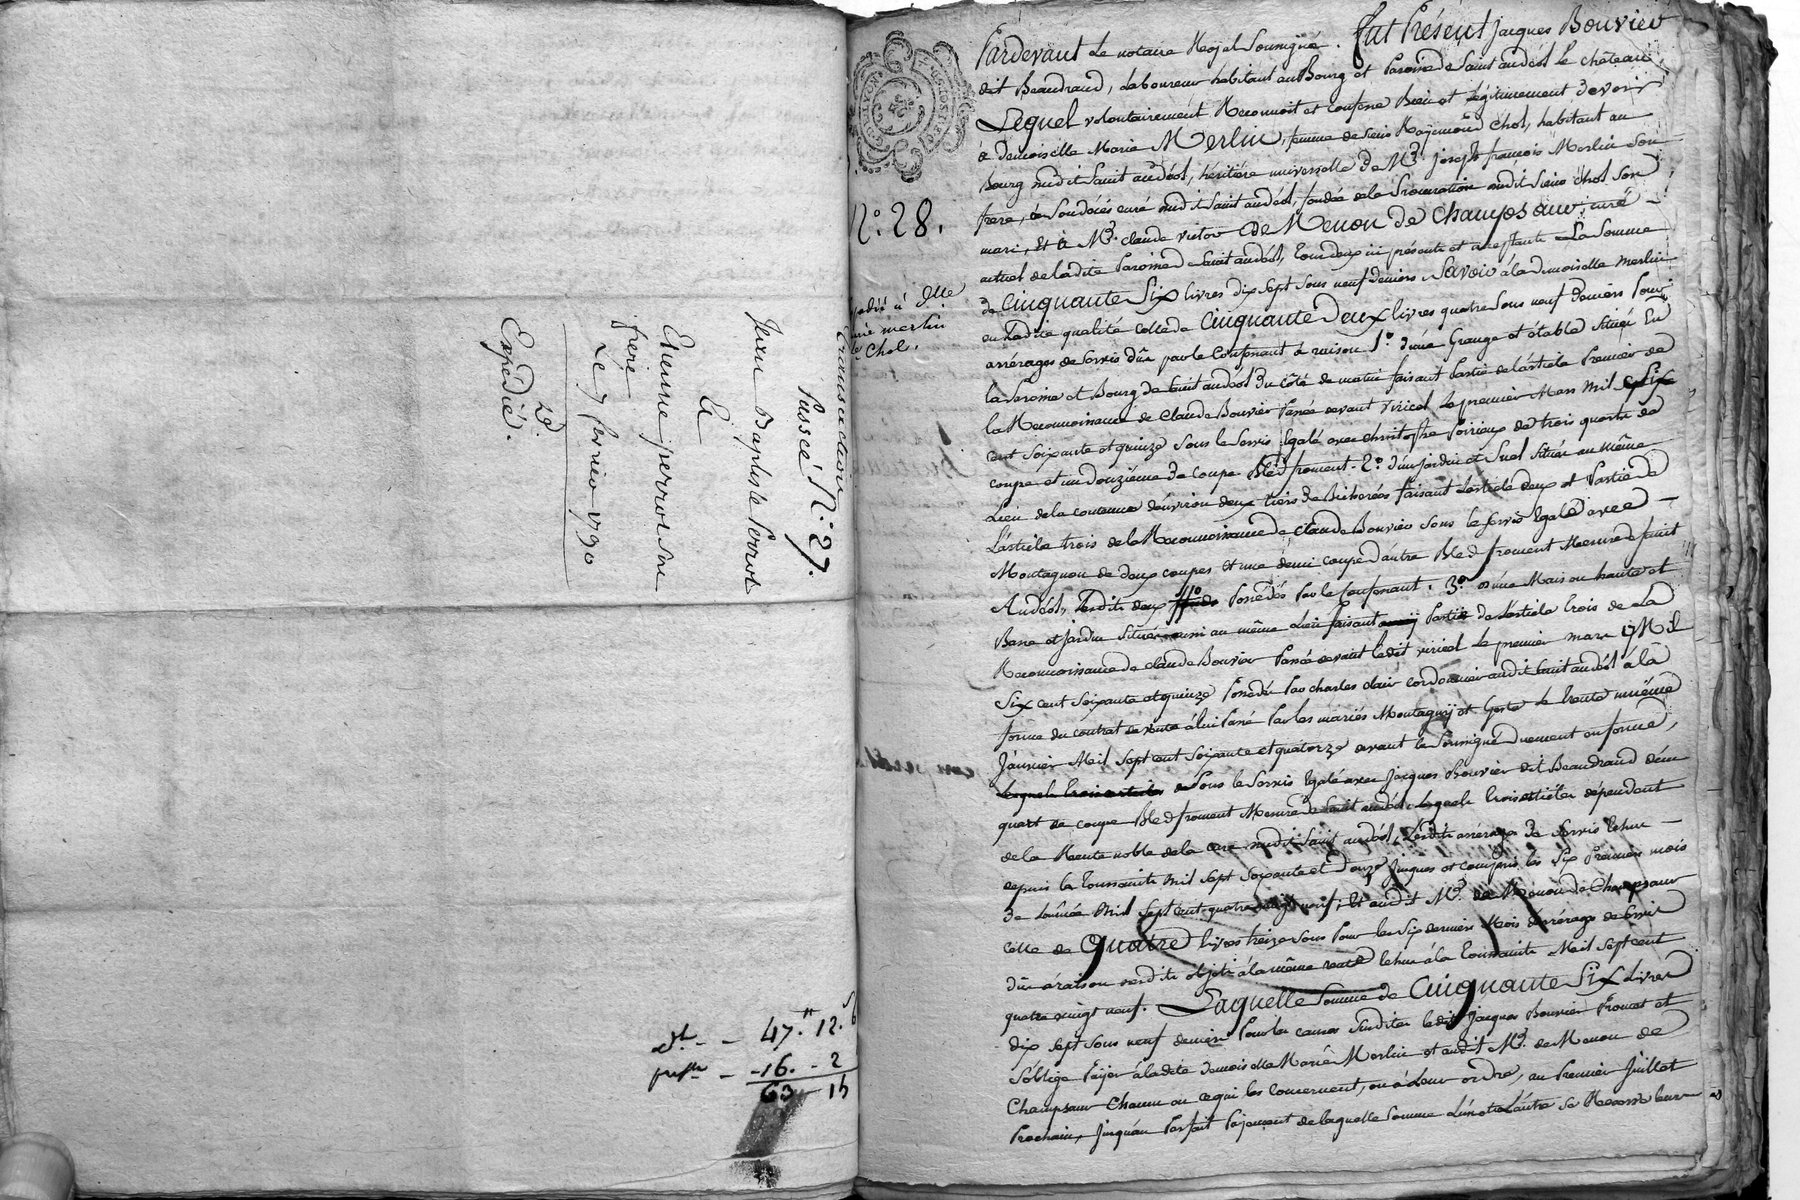 Transaction
Passée N.o 27.
Jean Baptiste Perrot
à
Etienne perrot son
frere
Le 7 fevrier 1790
Expédié.
47.ₗₗ 12. 6
16. - 2
63 - 15
N.o 28.
expédié à Dlle
marie merlin
Chol.
Pardevant Le notaire Royal Soussigné. fut Présent Jacques Bouvier
dit Beaudrand, Laboureur habitant au Bourg et Paroisse de Saint andéol le château,
Lequel volontairement Reconnoit et confesse Bien et légitimement devoir
à Demoiselle Marie Merlin, femme de sieur Raÿemond Chol, habitant au
Bourg dudit Saint andéol, héritière universelle de Mre. Joseph françois Merlin son
frere, à son décés curé dudit Saint andéol, fondée de la Procuration dudit Sieur Chol son
mari, Et à Mre. claude victor de Menon de Champsaur curé
actuel de ladite Paroisse de Saint andéol, tous deux ici présents et acceptants La Somme
de Cinquante Six livres dix sept sous neuf deniers, Savoir à la demoiselle Merlin
en Ladite qualité celle de Cinquante Deux livres quatre sous neuf deniers Pour
arrérages de servis dûs par le Confessant à raison 1.o d'une Grange et étable Située En
la Paroisse et Bourg de Saint andéol du côté de matin faisant Partie de l'article Premier de
la Reconnoissance de Claude Bouvier Passée devant viricel le premier Mars Mil Six
cent soixante et quinze Sous le Servis Egalé avec christophe Poirieux de trois quarts de
coupe et un douzième de coupe Bled froment. 2.o d'un Jardin et Suel Situés au même
Lieu de la contenue d'environ deux tiers de Bicherées faisant L'article deux et Partie de
L'article trois de la Reconnoissance de Claude Bouvier Sous le servis Egalé avec
Montagnon de deux coupes et une demi coupe d'autre Bled froment Mesure de Saint
Andéol, Lesdits deux fonds Possédés Par le Confessant. 3.o d'une Maison haute et
Basse et Jardin Situés aussi au même Lieu faisant Partie de L'article trois de La
Reconnoissance de claude Bouvier Passée devant Ledit viricel Le premier mars Mil
Six cent Soixante et quinze Possédés Par charles clair cordonnier audit Saint andéol à la
forme du contrat de vente à lui Passé Par les mariés Montagny et Gorte Le trente unième
Janvier Mil Sept cent soixante et quatorze devant le Soussigné Duement en forme,
lesquels trois articles Sous le Servis Egalé avec Jacques Bouvier dit Beaudrand d'un
quart de coupe Bled froment Mesure de Saint andéol. Lesquels trois articles dépendent
de la Rente noble de la cure dudit Saint andéol, Lesdits arrérages de Servis Echus
depuis la Toussaints Mil Sept Soixante et Douze Jusques et compris les Six Premiers mois
de L'année Mil Sept Cent quatre vingt neuf; Et audit Mre. de Menon de Champsaur
celle de Quatre livres treize sous Pour les Six derniers Mois d'arrérages de servis
dûs à raison desdits objets à la même rente échus à la Toussaints Mil Sept cent
quatre vingt neuf. Laquelle Somme de Cinquante Six Livres
dix sept sous neuf deniers Pour les causes Susdites ledit Jacques Bouvier Promet et
S'oblige Païer à ladite demoiselle Marie Merlin et audit Mre. de Menon de
Champsaur Chacun en ce qui les Concernent, ou à Leur ordre, au Premier Juillet
Prochain, Jusqu'au Parfait Paÿement de laquelle Somme L'un et L'autre se Réservent leurs